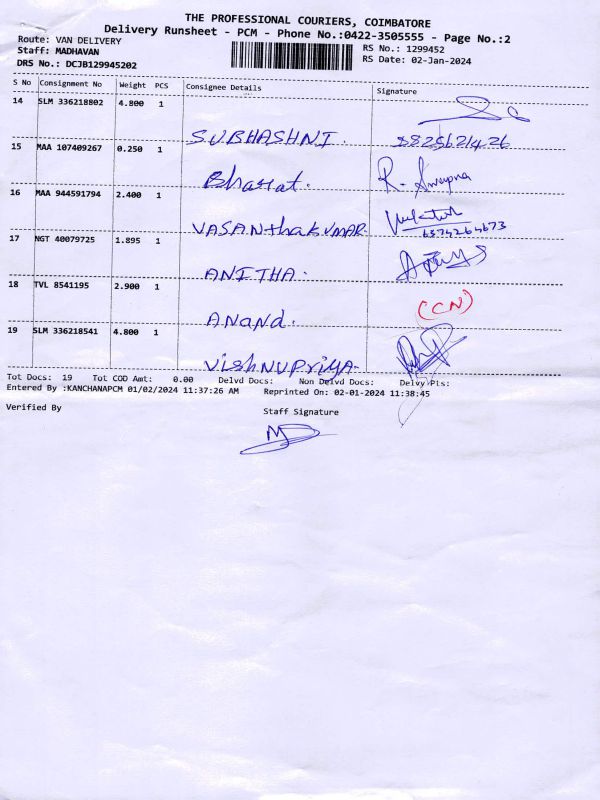 THE PROFESSIONAL COURIERS, COIMBATORE
Delivery Runsheet - PCM - Phone No.:0422-3505555 - Page No.:2
Route: VAN DELIVERY RS No.: 1299452
Staff: MADHAVAN RS Date: 02-Jan-2024
DRS No.: DCJB129945202
S No Consignment No Weight PCS Consignee Details Signature
14 SLM 336218802 4.800 1
SUBHASHNI.
15 MAA 107409267 0.250 1
Bharat. R. Swapna
16 MAA 944591794 2.400 1
VASANthaKUMAR
17 NGT 40079725 1.895 1
ANITHA.
18 TVL 8541195 2.900 1 (CN)
ANand.
19 SLM 336218541 4.800 1
VishNUPriya-
Tot Docs: 19 Tot COD Amt: 0.00 Delvd Docs: Non Delvd Docs: Delvy Pts:
Entered By :KANCHANAPCM 01/02/2024 11:37:26 AM Reprinted On: 02-01-2024 11:38:45
Verified By Staff Signature